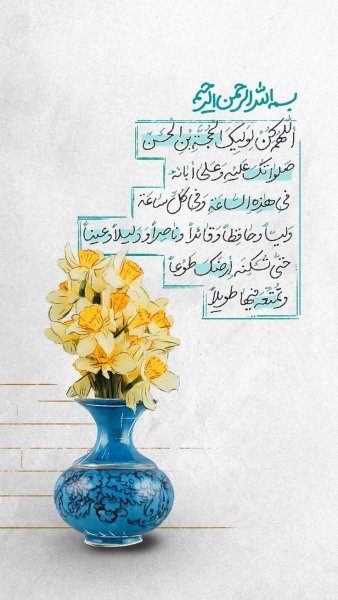 بسم الله الرحمن الرحیم
أللهم کن لولیک الحجة بن الحسن
صلواتک علیه وعلی آبائه
في هذه الساعة وفي کل ساعة
ولیاً وحافظاً وقائداً وناصراً ودلیلاً وعیناً
حتی تسکنه أرضک طوعاً
وتمتعه فیها طویلاً